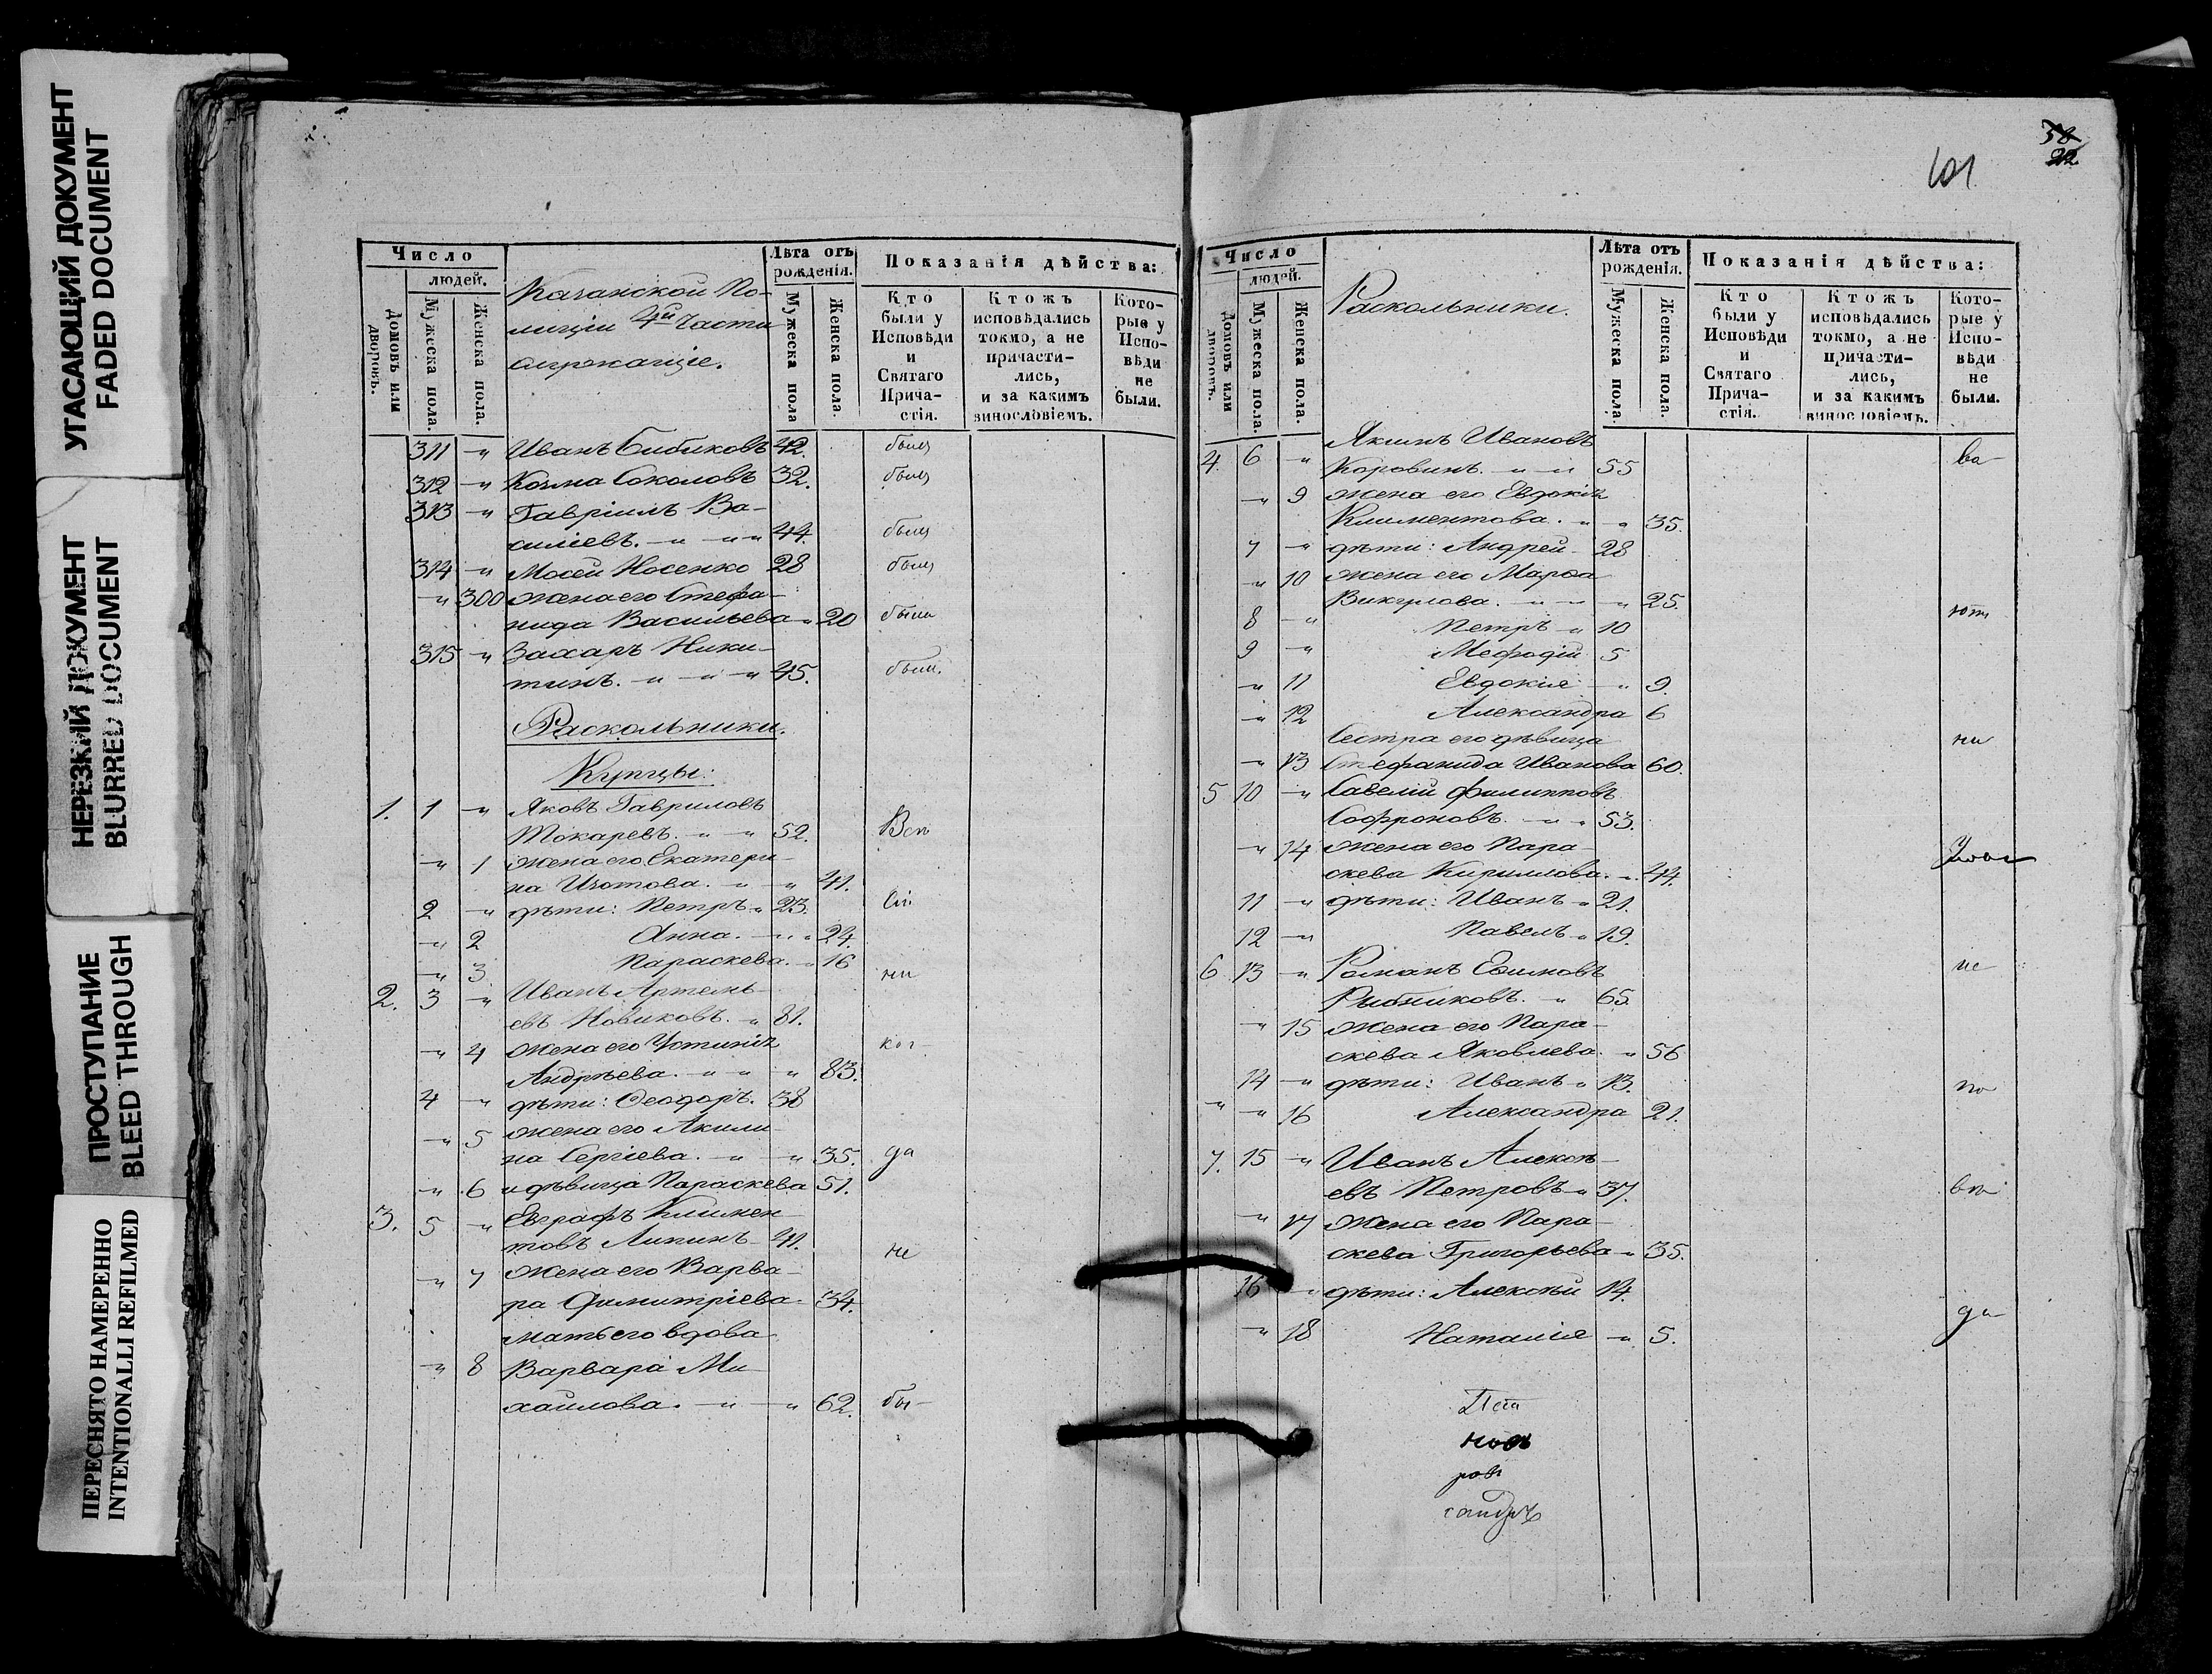 УГАСАЮЩИЙ ДОКУМЕНТ
FADED DOCUMENT
НЕРЕЗКИЙ ДОКУМЕНТ
BLURRED DOCUMENT
ПРОСТУПАНИЕ
BLEED THROUGH
ПЕРЕСНЯТО НАМЕРЕННО
INTENTIONALLI REFILMED
Число
людей.
Домовъ или дворовъ.
Мужеска пола.
Женска пола.
Казанской По-
лиціи 4й Части
служащіе.
Лѣта отъ рожденія.
Мужеска пола
Женска пола.
Показанія дѣйства:
Кто были у Исповѣди и Святаго Прича-стія.
Ктожъ исповѣдались токмо, а не причасти-лись, и за какимъ винословіемъ.
Кото-рые у Испо-вѣди не были.
311 " Иванъ Бибиковъ 42. былъ
312 " Козма Соколовъ 32. былъ
313 " Гавріилъ Ва-
силіевъ. " " " 44. былъ
314 " Мосей Носенко 28 былъ
" 300 жена его Стефа-
нида Васильева " 20 была
315 " Захаръ Ники-
тинъ. " " " 45. былъ.
Раскольники.
Купцы:
1. 1 " Яковъ Гавриловъ
Токаревъ. " " 52. Всѣ
" 1 жена его Екатери-
на Изотова. " " 41.
2 " дѣти: Петръ " 23. сіи
" 2 Анна. " " 24.
" 3 Параскева. " 16 ни
2. 3 " Иванъ Артемь-
евъ Новиковъ. " 81.
" 4 жена его Устинія ког-
Андрѣева. " " " 83.
4 " дѣти: Ѳеодоръ. 38
" 5 жена его Акили-
на Сергіева. " " 35. да
" 6 и дѣвица Параскева 51.
3. 5 " Евграфъ Климен-
товъ Липинъ 41. не
" 7 жена его Варва-
ра Димитріева 34.
мать его вдова
" 8 Варвара Ми-
хаилова. " " 62. бы-
58
22
101
Число
людей.
Домовъ или дворовъ.
Мужеска пола.
Женска пола.
Раскольники.
Лѣта отъ рожденія.
Мужеска пола.
Женска пола.
Показанія дѣйства:
Кто были у Исповѣди и Святаго Прича-стія.
Ктожъ исповѣдались токмо, а не причасти-лись, и за какимъ винословіемъ.
Кото-рые у Испо-вѣди не были.
Якимъ Ивановъ
4. 6 " Коровинъ. " " 55 ва-
" 9 жена его Евдокія
Климентова. " " 35.
7 " дѣти: Андрей 28
" 10 жена его Марѳа
Викулова. " " " 25.
8 " Петръ " 10 ютъ
9 " Меѳодій 5
" 11 Евдокія " " 9.
" 12 Александра 6
Сестра его дѣвица ни
" 13 Стефанида Иванова 60.
5 10 " Савелій Филипповъ
Софроновъ. " " 53.
" 14 жена его Пара-
скева Кириллова. " 44.
11 " дѣти: Иванъ " 21.
12 " Павелъ " 19.
6 13 " Романъ Ефимовъ не
Рыбниковъ. " 65.
" 15 жена его Пара-
скева Яковлева. " 56
14 " дѣти: Иванъ " 13. по
" " 16 Александра 21.
7. 15 " Иванъ Алексѣ-
евъ Петровъ " 37.
" 17 жена его Пара-
скева Григорьева " 35.
16 " дѣти: Алексѣй 14.
" 18 Наталія " 5. да